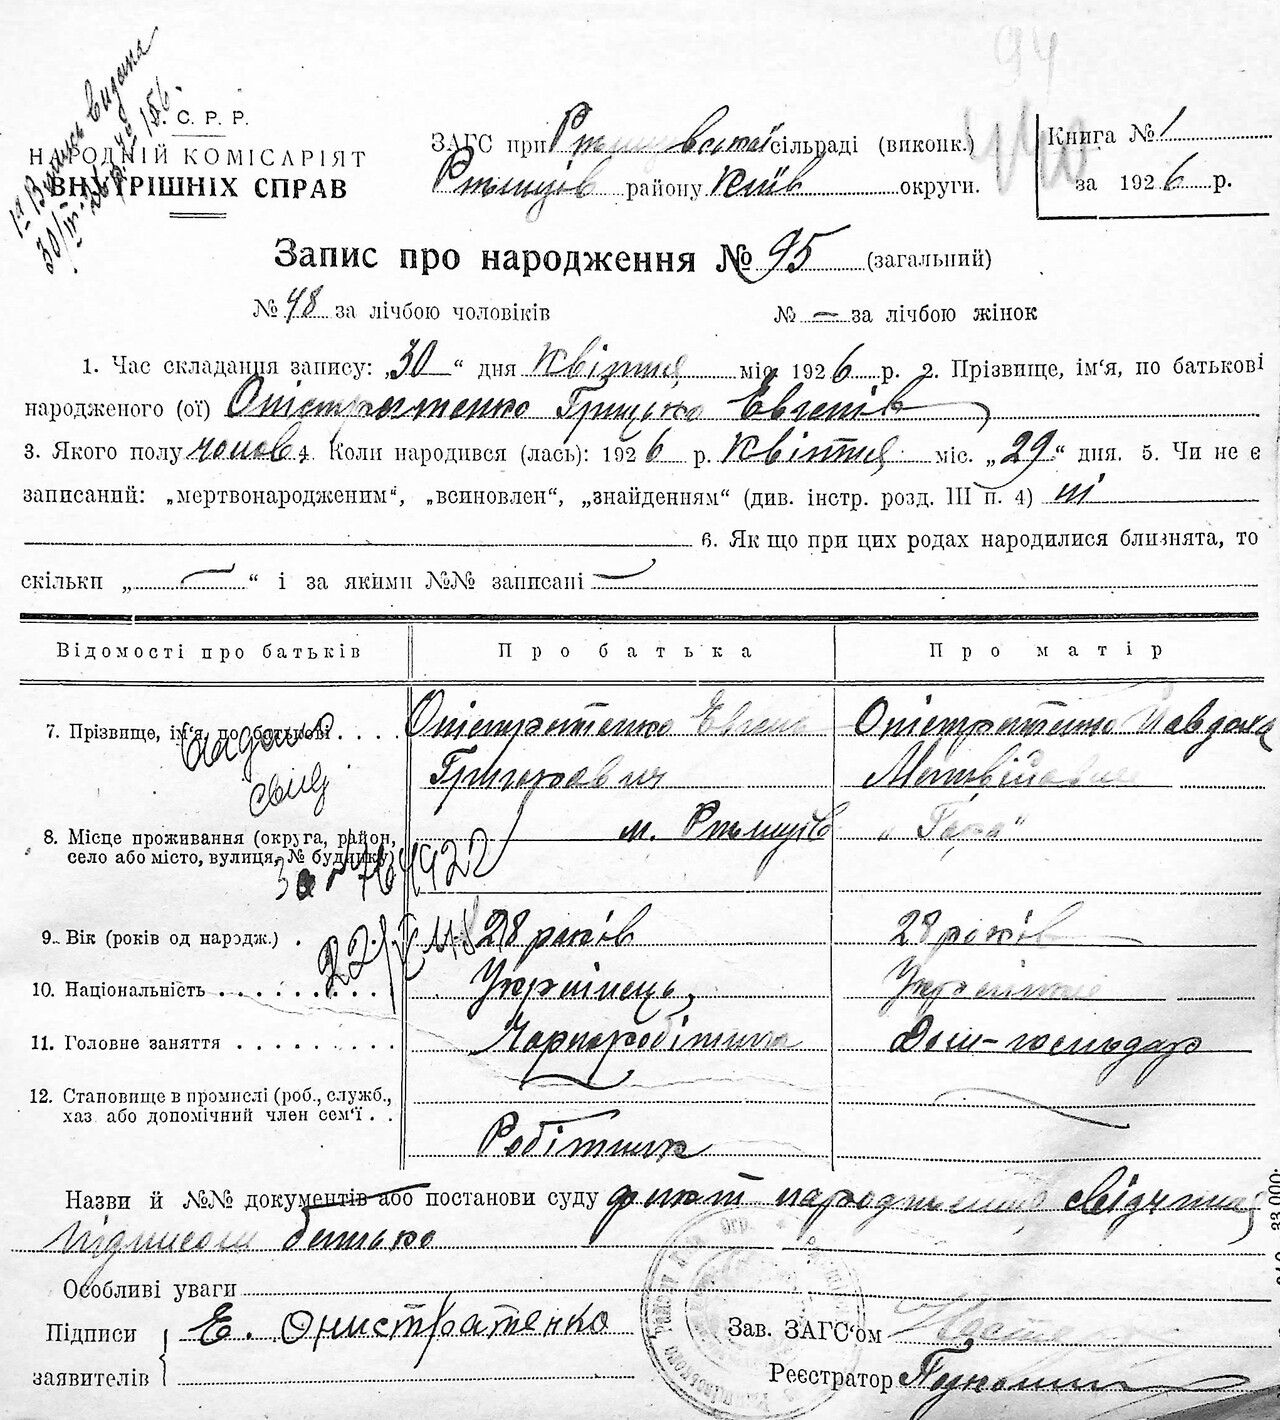 94
440
1а Випись видана
С. Р. Р.
НАРОДНІЙ КОМІСАРІЯТ
ВНУТРІШНІХ СПРАВ
ЗАГС при Ржищівській сільраді (виконк.)
Ржищів району Київ округи.
Книга № 1
за 1926 р.
Запис про народження № 95 (загальний)
№ 48 за лічбою чоловіків № — за лічбою жінок
1. Час складання запису: „30“ дня Квітня міс. 1926 р. 2. Прізвище, ім'я, по батькові
народженого (ої) Оністратенко Грицько Евгенів
3. Якого полу чолов. 4. Коли народився (лась): 1926 р. Квітня міс. „29“ дня. 5. Чи не є
записаний: „мертвонародженим“, „всиновлен“, „знайденням“ (див. інстр. розд. III п. 4) ні
6. Як що при цих родах народилися близнята, то
скільки „—“ і за якими №№ записані —
Відомості про батьків Про батька Про матір
7. Прізвище, ім'я, по батькові Оністратенко Евгень Оністратенко Явдоха
Григорович Матвійовна
8. Місце проживання (округа, район, м. Ржищів „Гора“
село або місто, вулиця, № будинку)
9. Вік (років од народж.) 28 років 28 років
10. Національність Українець Українка
11. Головне заняття Чорноробітник Дом-господар
12. Становище в промислі (роб., служб.,
хаз. або допомічний член сем'ї
Робітник
Назви й №№ документів або постанови суду факт народження свідчить
підписом батько
Особливі уваги
Підписи Е. Онистратенко Зав. ЗАГС'ом
заявителів Реєстратор